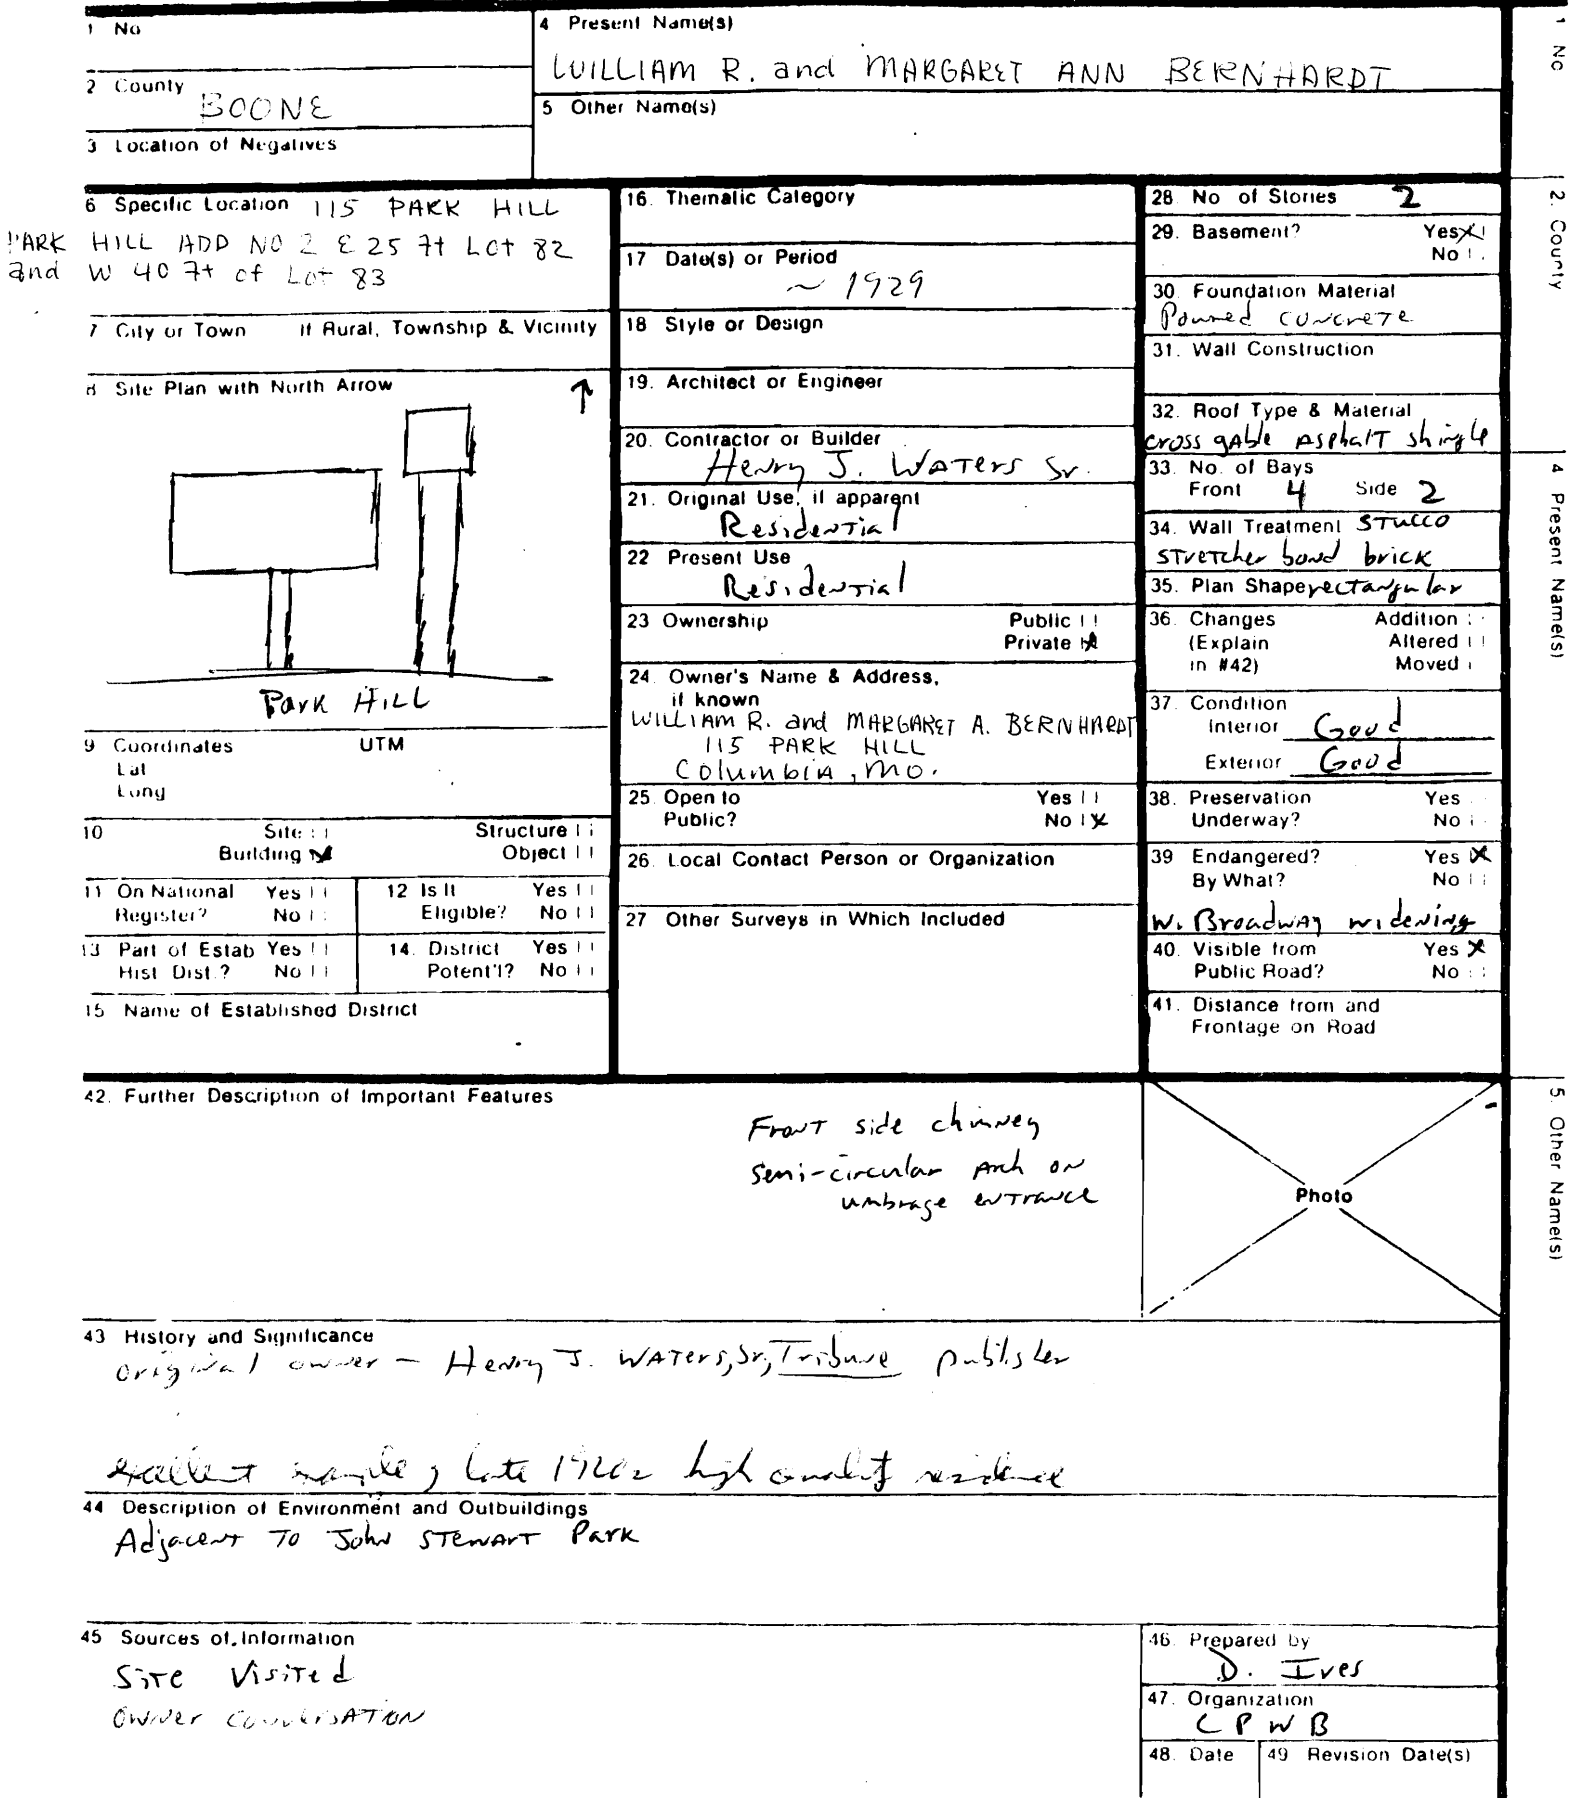 1 No
2 County
BOONE
3 Location of Negatives
4 Present Name(s)
WILLIAM R. and MARGARET ANN BERNHARDT
5 Other Name(s)
6 Specific Location 115 PARK HILL
PARK HILL ADD NO 2 E 25 Ft Lot 82
and W 40 Ft of Lot 83
7 City or Town If Rural, Township & Vicinity
8 Site Plan with North Arrow
Park HILL
9 Coordinates UTM
Lat
Long
10 Site
Structure
Building
Object
11 On National Register? Yes No
12 Is It Eligible? Yes No
13 Part of Estab Hist Dist.? Yes No
14. District Potent'l? Yes No
15 Name of Established District
16. Thematic Category
17 Date(s) or Period
~ 1929
18 Style or Design
19. Architect or Engineer
20. Contractor or Builder
Henry J. WATERS Sr.
21. Original Use, if apparent
Residential
22 Present Use
Residential
23 Ownership Public
Private
24. Owner's Name & Address,
if known
WILLIAM R. and MARGARET A. BERNHARDT
115 PARK HILL
Columbia, MO.
25. Open to Yes
Public? No
26. Local Contact Person or Organization
27 Other Surveys in Which Included
28. No of Stories 2
29. Basement? Yes
No
30. Foundation Material
Poured concrete
31. Wall Construction
32. Roof Type & Material
cross gable Asphalt shingle
33. No. of Bays
Front 4 Side 2
34. Wall Treatment STUCCO
stretcher bond brick
35. Plan Shape rectangular
36. Changes Addition
(Explain Altered
in #42) Moved
37. Condition
Interior Good
Exterior Good
38. Preservation Yes
Underway? No
39 Endangered? Yes
By What? No
W. Broadway widening
40. Visible from Yes
Public Road? No
41. Distance from and
Frontage on Road
42. Further Description of Important Features
Front side chimney
semi-circular Arch on
umbrage entrance
Photo
43 History and Significance
original owner - Henry J. WATERS, Sr, Tribune publisher
excellent example of late 1920s high quality residence
44 Description of Environment and Outbuildings
Adjacent To John Stewart Park
45 Sources of Information
Site Visited
Owner Conversation
46. Prepared by
D. Ives
47. Organization
CPWB
48. Date
49 Revision Date(s)
1 No
2. County
4 Present Name(s)
5. Other Name(s)